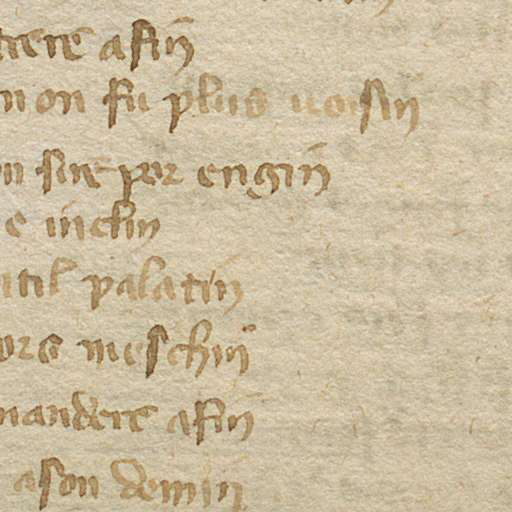 trere a fin
non fu plus uoisin
on sire per engin
e inclin
ntil palatin
ors meschin
mandere a fin
a son demin